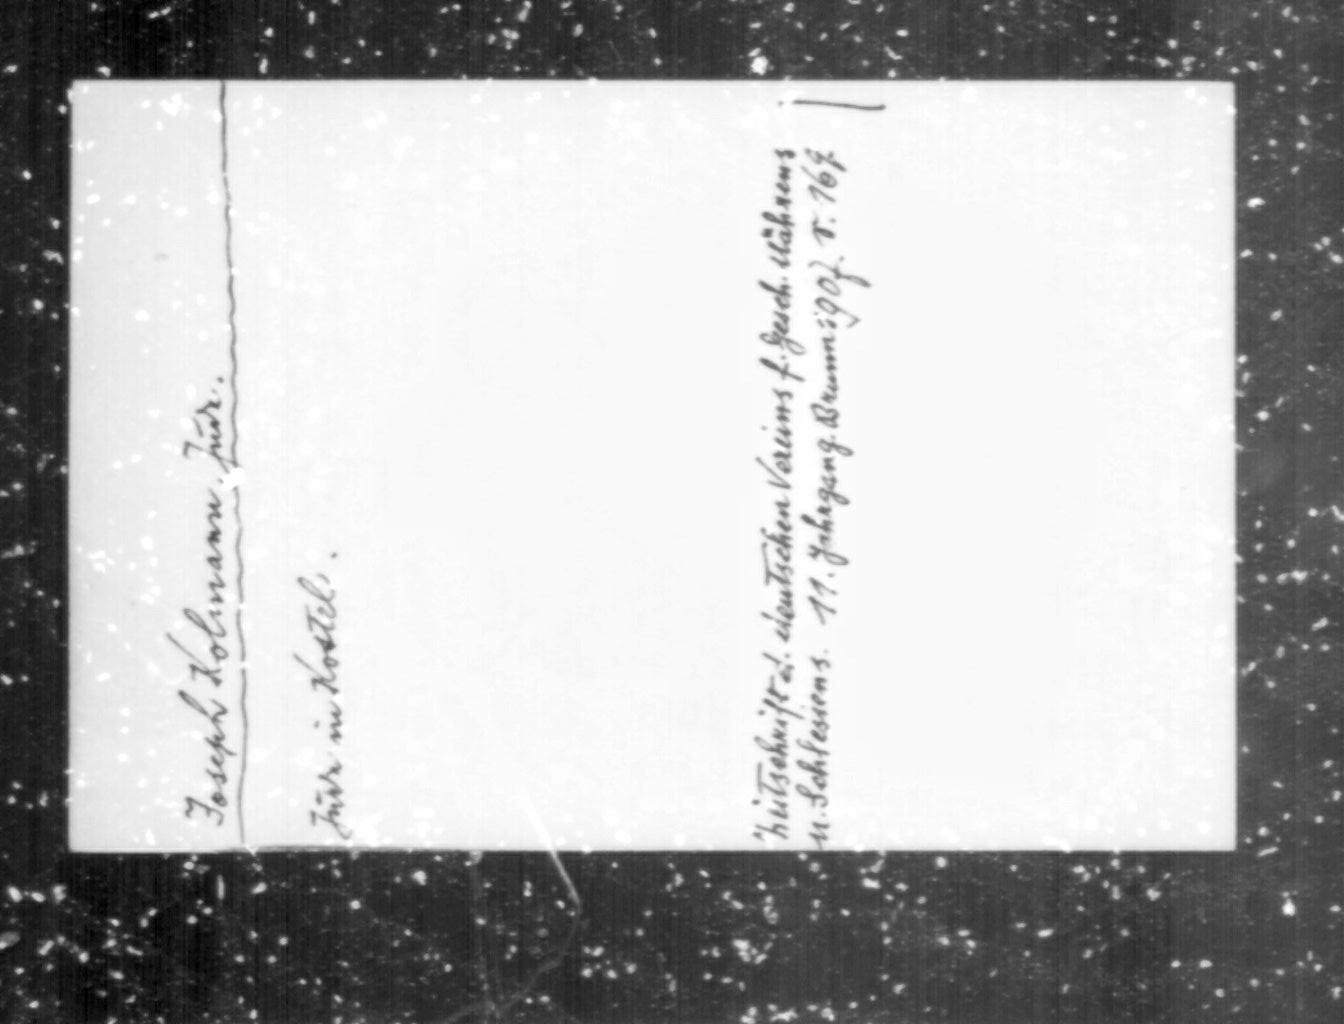 Joseph Kolmann. Jude.
Jude in Kostel.
Zeitschrift d. deutschen Vereins f. Gesch. Mährens
u. Schlesiens. 11. Jahrgang. Brünn 1907. S. 167